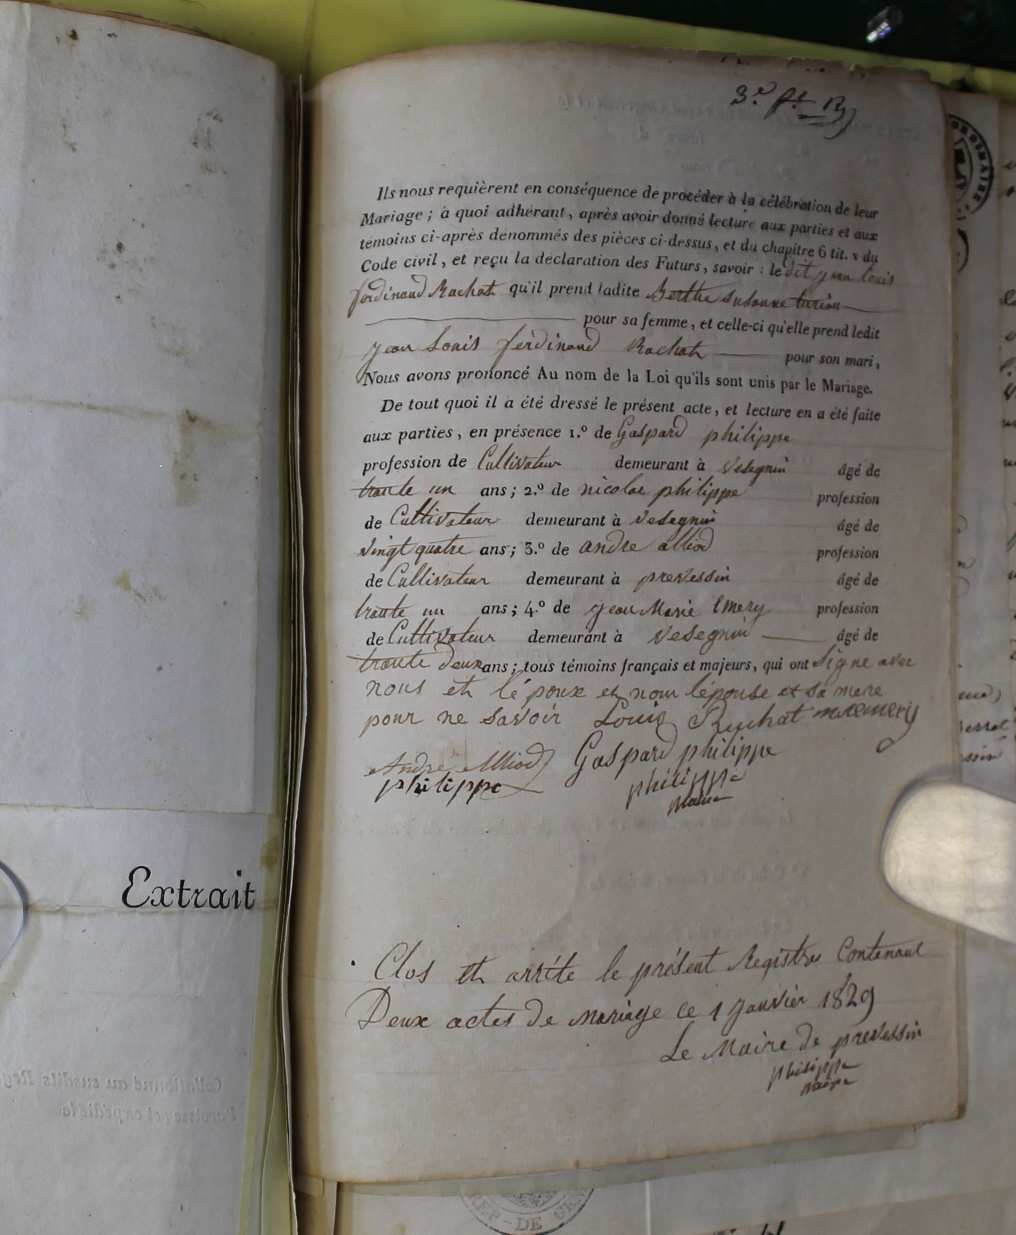 3.e ft. B
Ils nous requièrent en conséquence de procéder à la célébration de leur
Mariage ; à quoi adhérant, après avoir donné lecture aux parties et aux
témoins ci-après dénommés des pièces ci-dessus, et du chapitre 6 tit. v du
Code civil, et reçu la déclaration des Futurs, savoir : le dit jean louis
ferdinand Rachat qu'il prend ladite Berthe Susanne turian
pour sa femme, et celle-ci qu'elle prend ledit
jean Louis ferdinand Rachat pour son mari,
Nous avons prononcé Au nom de la Loi qu'ils sont unis par le Mariage.
De tout quoi il a été dressé le présent acte, et lecture en a été faite
aux parties, en présence 1.º de Gaspard philippe
profession de Cultivateur demeurant à vesegnin âgé de
trante un ans ; 2.º de nicolas philippe profession
de Cultivateur demeurant à vesegnin âgé de
vingt quatre ans ; 3.º de andre alliod profession
de Cultivateur demeurant à prevessin âgé de
trante un ans ; 4.º de jean Marie Emery profession
de Cultivateur demeurant à vesegnin âgé de
trante deux ans ; tous témoins français et majeurs, qui ont signe avec
nous et l'époux et non l'épouse et sa mere
pour ne savoir Louis Ruchat m emery
André Alliod Gaspard philippe
philippe philippe
maire
Extrait
Clos et arréte le présent Registre Contenant
Deux actes de mariage ce 1 janvier 1829
Le Maire de prevessin
philippe
maire